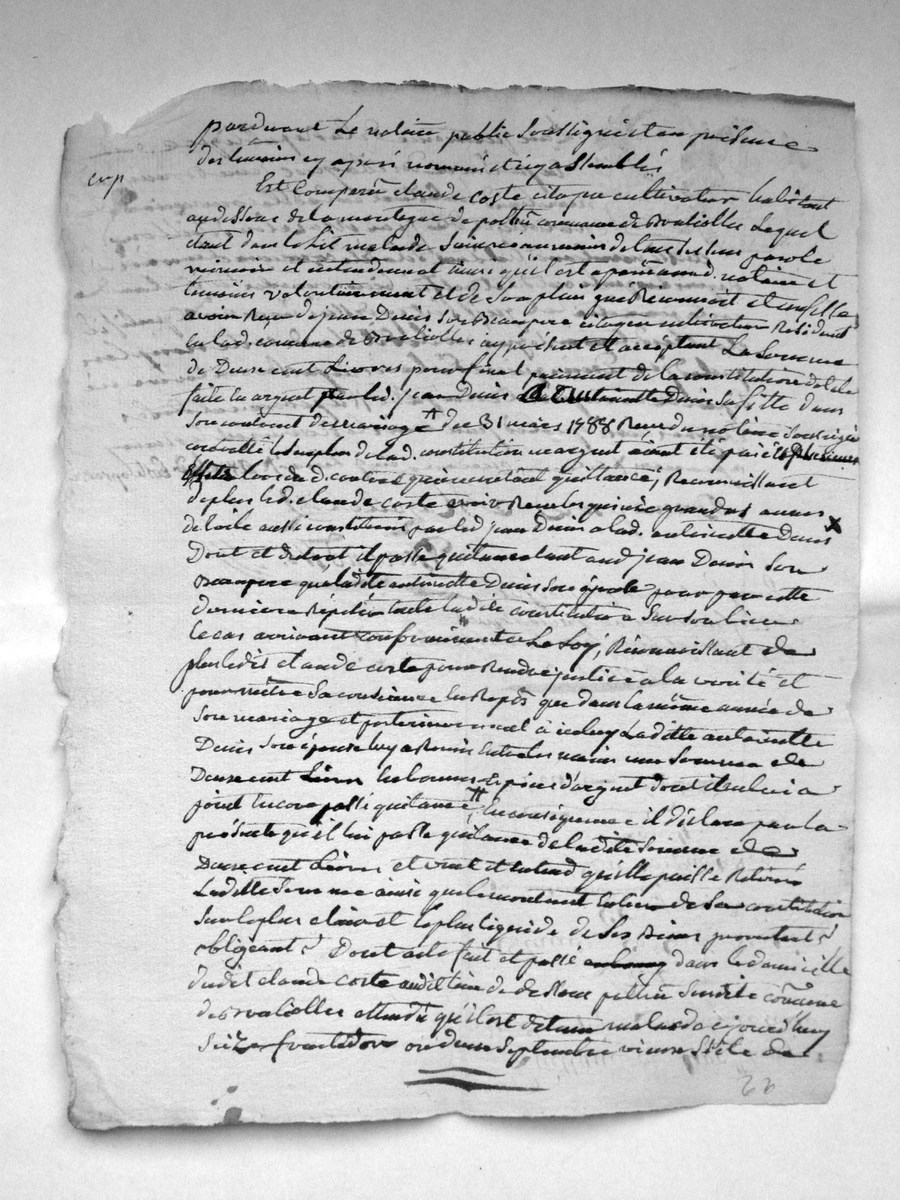 pardevant Le notaire public Soussigné et en présence
des témoins cy après nommés et icy assemblés
exp
Est Comparu claude coste citoyen cultivateur habitant
au dessous de la montagne de commune de Lequel
étant dans le Lit malade Sain néanmoins de Ses Sens parole
mémoire et entendement ainsi qu'il est apparu aud. notaire et
témoins volontairement et de Son plein gré Reconnoit et confesse
avoir Reçu de jean Denis Son Beaupere citoyen cultivateur Résident
en lad. commune de icy présent et acceptant La Somme
de Deux cent Livres pour final payement de la constitution dotale
faite en argent par led. jean Denis a antoinette Denis Sa fille dans
Son contrat de mariage du 31 mars 1788 Reçu du notaire Soussigné
controllé le Surplus de lad. constitution en argent aiant été payé
lors dud. contrat qui en contient quittance; Reconnoissant
de plus led. claude coste avoir Reçu les quinze grandes aunes
de toile aussi constituées par led. jean Denis a lad. antoinette Denis
Dont et du tout il passe quittance tant aud. jean Denis Son
Beaupere qu'a ladite antoinette Denis Son épouse pour par cette
derniere Répéter toute ladite constitution a Son
le cas arrivant conformément a La Loy; Reconnoissant de
plus ledit claude coste pour Rendre justice a la verité et
pour mettre Sa conscience en Repos que dans la même année de
Son mariage et posterieurement à icelluy Laditte antoinette
Denis Son épouse luy a Remis Entre les mains une Somme de
Deux cent Livres En bonnes Espèces d'argent dont il ne lui a
point Encore passé quittance; En conséquence il déclare par la
présente qu'il lui passe quittance de la ditte Somme de
Deux cent Livres et veut et entend qu'elle puisse Retirer
Laditte Somme ainsi que le montant Entier de Sa constitution
Sur le plus clair et le plus liquide de Ses Biens promettant
obligeant Dont acte fait et passé dans le domicille
dudit claude coste audit lieu de dessous Susdite commune
de attendu qu'il est detenu malade ce jourd'huy
Seize fructidor ou deux Septembre vieux Stile de